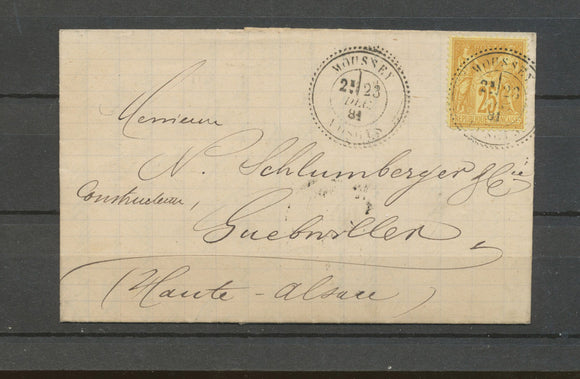 MOUSSEY
2E 23
DEC
81
VOSGES
MOUSSEY
23
25
81
Monsieur
N. Schlumberger & Cie
Constructeur,
Guebwiller
(Haute-Alsace)